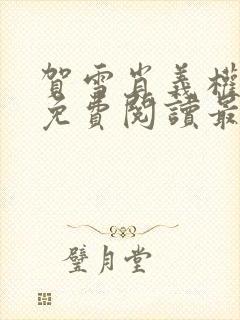 賀雪肖義權
免費閱讀最
璧月堂